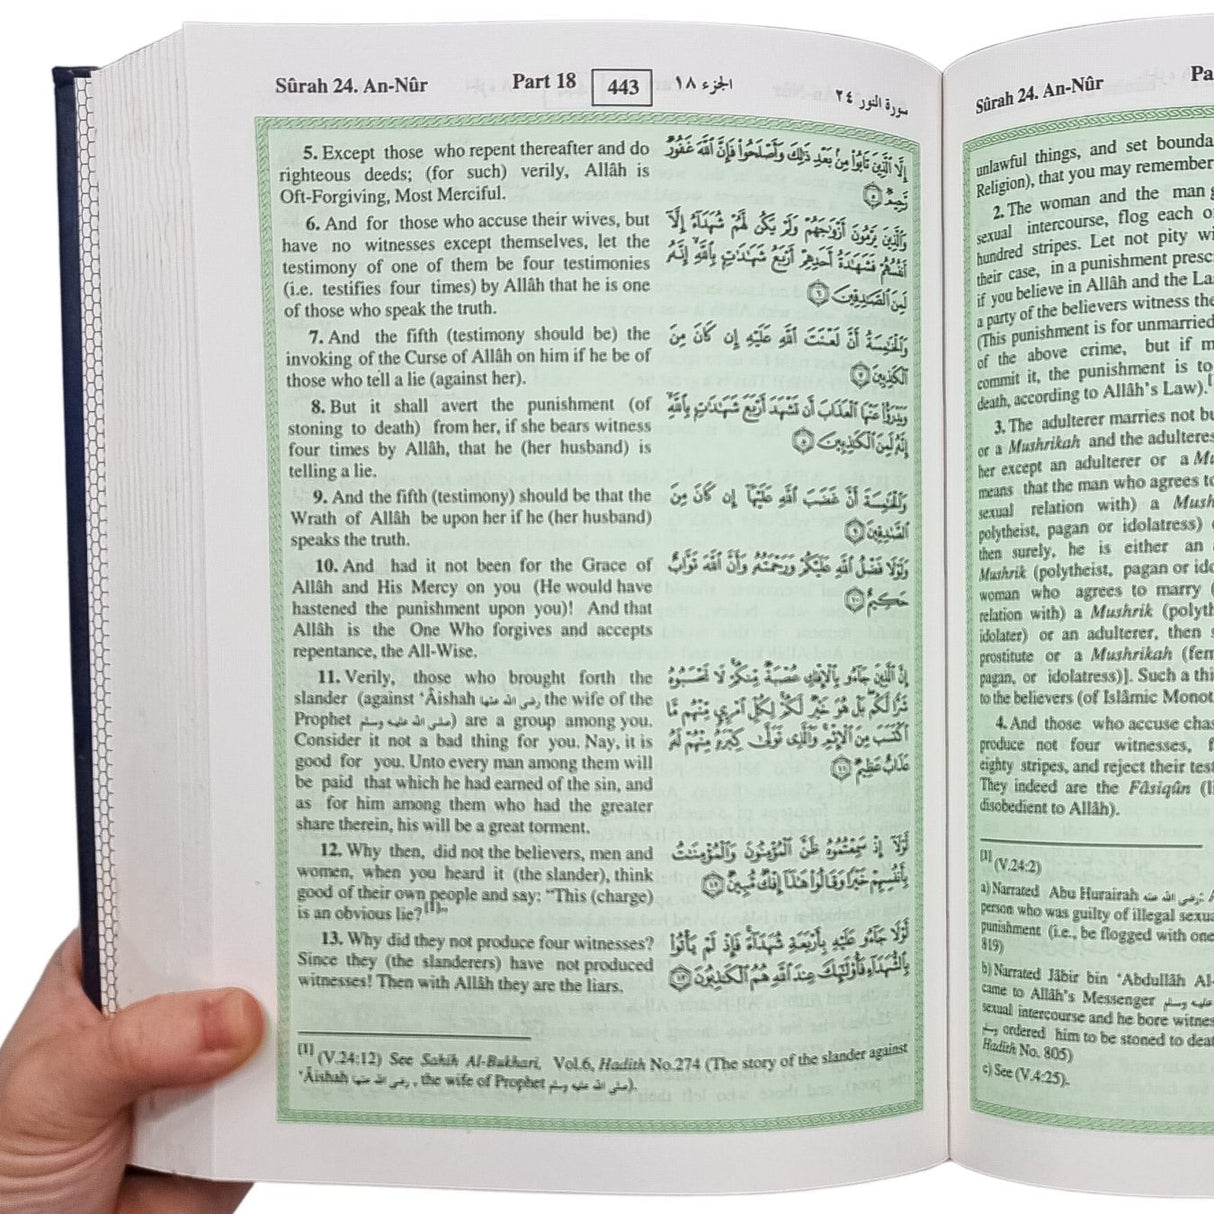 Sûrah 24. An-Nûr Part 18 443 الجزء ١٨ سورة النور ٢٤
5. Except those who repent thereafter and do
righteous deeds; (for such) verily, Allâh is
Oft-Forgiving, Most Merciful.
6. And for those who accuse their wives, but
have no witnesses except themselves, let the
testimony of one of them be four testimonies
(i.e. testifies four times) by Allâh that he is one
of those who speak the truth.
7. And the fifth (testimony should be) the
invoking of the Curse of Allâh on him if he be of
those who tell a lie (against her).
8. But it shall avert the punishment (of
stoning to death) from her, if she bears witness
four times by Allâh, that he (her husband) is
telling a lie.
9. And the fifth (testimony) should be that the
Wrath of Allâh be upon her if he (her husband)
speaks the truth.
10. And had it not been for the Grace of
Allâh and His Mercy on you (He would have
hastened the punishment upon you)! And that
Allâh is the One Who forgives and accepts
repentance, the All-Wise.
11. Verily, those who brought forth the
slander (against ‘Âishah رضي الله عنها the wife of the
Prophet صلى الله عليه وسلم) are a group among you.
Consider it not a bad thing for you. Nay, it is
good for you. Unto every man among them will
be paid that which he had earned of the sin, and
as for him among them who had the greater
share therein, his will be a great torment.
12. Why then, did not the believers, men and
women, when you heard it (the slander), think
good of their own people and say: “This (charge)
is an obvious lie?[1]”
13. Why did they not produce four witnesses?
Since they (the slanderers) have not produced
witnesses! Then with Allâh they are the liars.
إِلَّا الَّذِينَ تَابُوا مِنْ بَعْدِ ذَلِكَ وَأَصْلَحُوا فَإِنَّ اللَّهَ غَفُورٌ
رَحِيمٌ ٥
وَالَّذِينَ يَرْمُونَ أَزْوَاجَهُمْ وَلَمْ يَكُنْ لَهُمْ شُهَدَاءُ إِلَّا
أَنْفُسُهُمْ فَشَهَادَةُ أَحَدِهِمْ أَرْبَعُ شَهَادَاتٍ بِاللَّهِ إِنَّهُ
لَمِنَ الصَّادِقِينَ ٦
وَالْخَامِسَةُ أَنَّ لَعْنَتَ اللَّهِ عَلَيْهِ إِنْ كَانَ مِنَ
الْكَاذِبِينَ ٧
وَيَدْرَؤُا عَنْهَا الْعَذَابَ أَنْ تَشْهَدَ أَرْبَعَ شَهَادَاتٍ بِاللَّهِ
إِنَّهُ لَمِنَ الْكَاذِبِينَ ٨
وَالْخَامِسَةَ أَنَّ غَضَبَ اللَّهِ عَلَيْهَا إِنْ كَانَ مِنَ
الصَّادِقِينَ ٩
وَلَوْلَا فَضْلُ اللَّهِ عَلَيْكُمْ وَرَحْمَتُهُ وَأَنَّ اللَّهَ تَوَّابٌ
حَكِيمٌ ١٠
إِنَّ الَّذِينَ جَاءُو بِالْإِفْكِ عُصْبَةٌ مِنْكُمْ لَا تَحْسَبُوهُ
شَرًّا لَكُمْ بَلْ هُوَ خَيْرٌ لَكُمْ لِكُلِّ امْرِئٍ مِنْهُمْ مَا
اكْتَسَبَ مِنَ الْإِثْمِ وَالَّذِي تَوَلَّى كِبْرَهُ مِنْهُمْ لَهُ
عَذَابٌ عَظِيمٌ ١١
لَوْلَا إِذْ سَمِعْتُمُوهُ ظَنَّ الْمُؤْمِنُونَ وَالْمُؤْمِنَاتُ
بِأَنْفُسِهِمْ خَيْرًا وَقَالُوا هَذَا إِفْكٌ مُبِينٌ ١٢
لَوْلَا جَاءُو عَلَيْهِ بِأَرْبَعَةِ شُهَدَاءَ فَإِذْ لَمْ يَأْتُوا
بِالشُّهَدَاءِ فَأُولَئِكَ عِنْدَ اللَّهِ هُمُ الْكَاذِبُونَ ١٣
[1] (V.24:12) See Sahih Al-Bukhari, Vol.6, Hadith No.274 (The story of the slander against
‘Âishah رضي الله عنها, the wife of Prophet صلى الله عليه وسلم).
Sûrah 24. An-Nûr Pa
unlawful things, and set bounda
Religion), that you may remember
2. The woman and the man
sexual intercourse, flog each o
hundred stripes. Let not pity wi
their case, in a punishment presc
if you believe in Allâh and the La
a party of the believers witness the
(This punishment is for unmarried
of the above crime, but if m
commit it, the punishment is to
death, according to Allâh’s Law).
3. The adulterer marries not bu
or a Mushrikah and the adulteres
her except an adulterer or a Mu
means that the man who agrees to
sexual relation with) a Mush
polytheist, pagan or idolatress)
then surely, he is either an
Mushrik (polytheist, pagan or ido
woman who agrees to marry
relation with) a Mushrik (polyth
idolater) or an adulterer, then
prostitute or a Mushrikah (fem
pagan, or idolatress)]. Such a thi
to the believers (of Islâmic Monot
4. And those who accuse chas
produce not four witnesses, f
eighty stripes, and reject their test
They indeed are the Fâsiqûn (li
disobedient to Allâh).
[1] (V.24:2)
a) Narrated Abu Hurairah رضي الله عنه: A
person who was guilty of illegal sexua
punishment (i.e., be flogged with one
819)
b) Narrated Jâbir bin ‘Abdullâh Al-
came to Allâh’s Messenger
sexual intercourse and he bore witnes
ordered him to be stoned to deat
Hadith No. 805)
c) See (V.4:25).